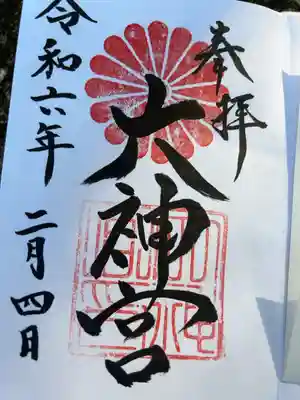 奉拝
大神宮
令和六年
二月四日